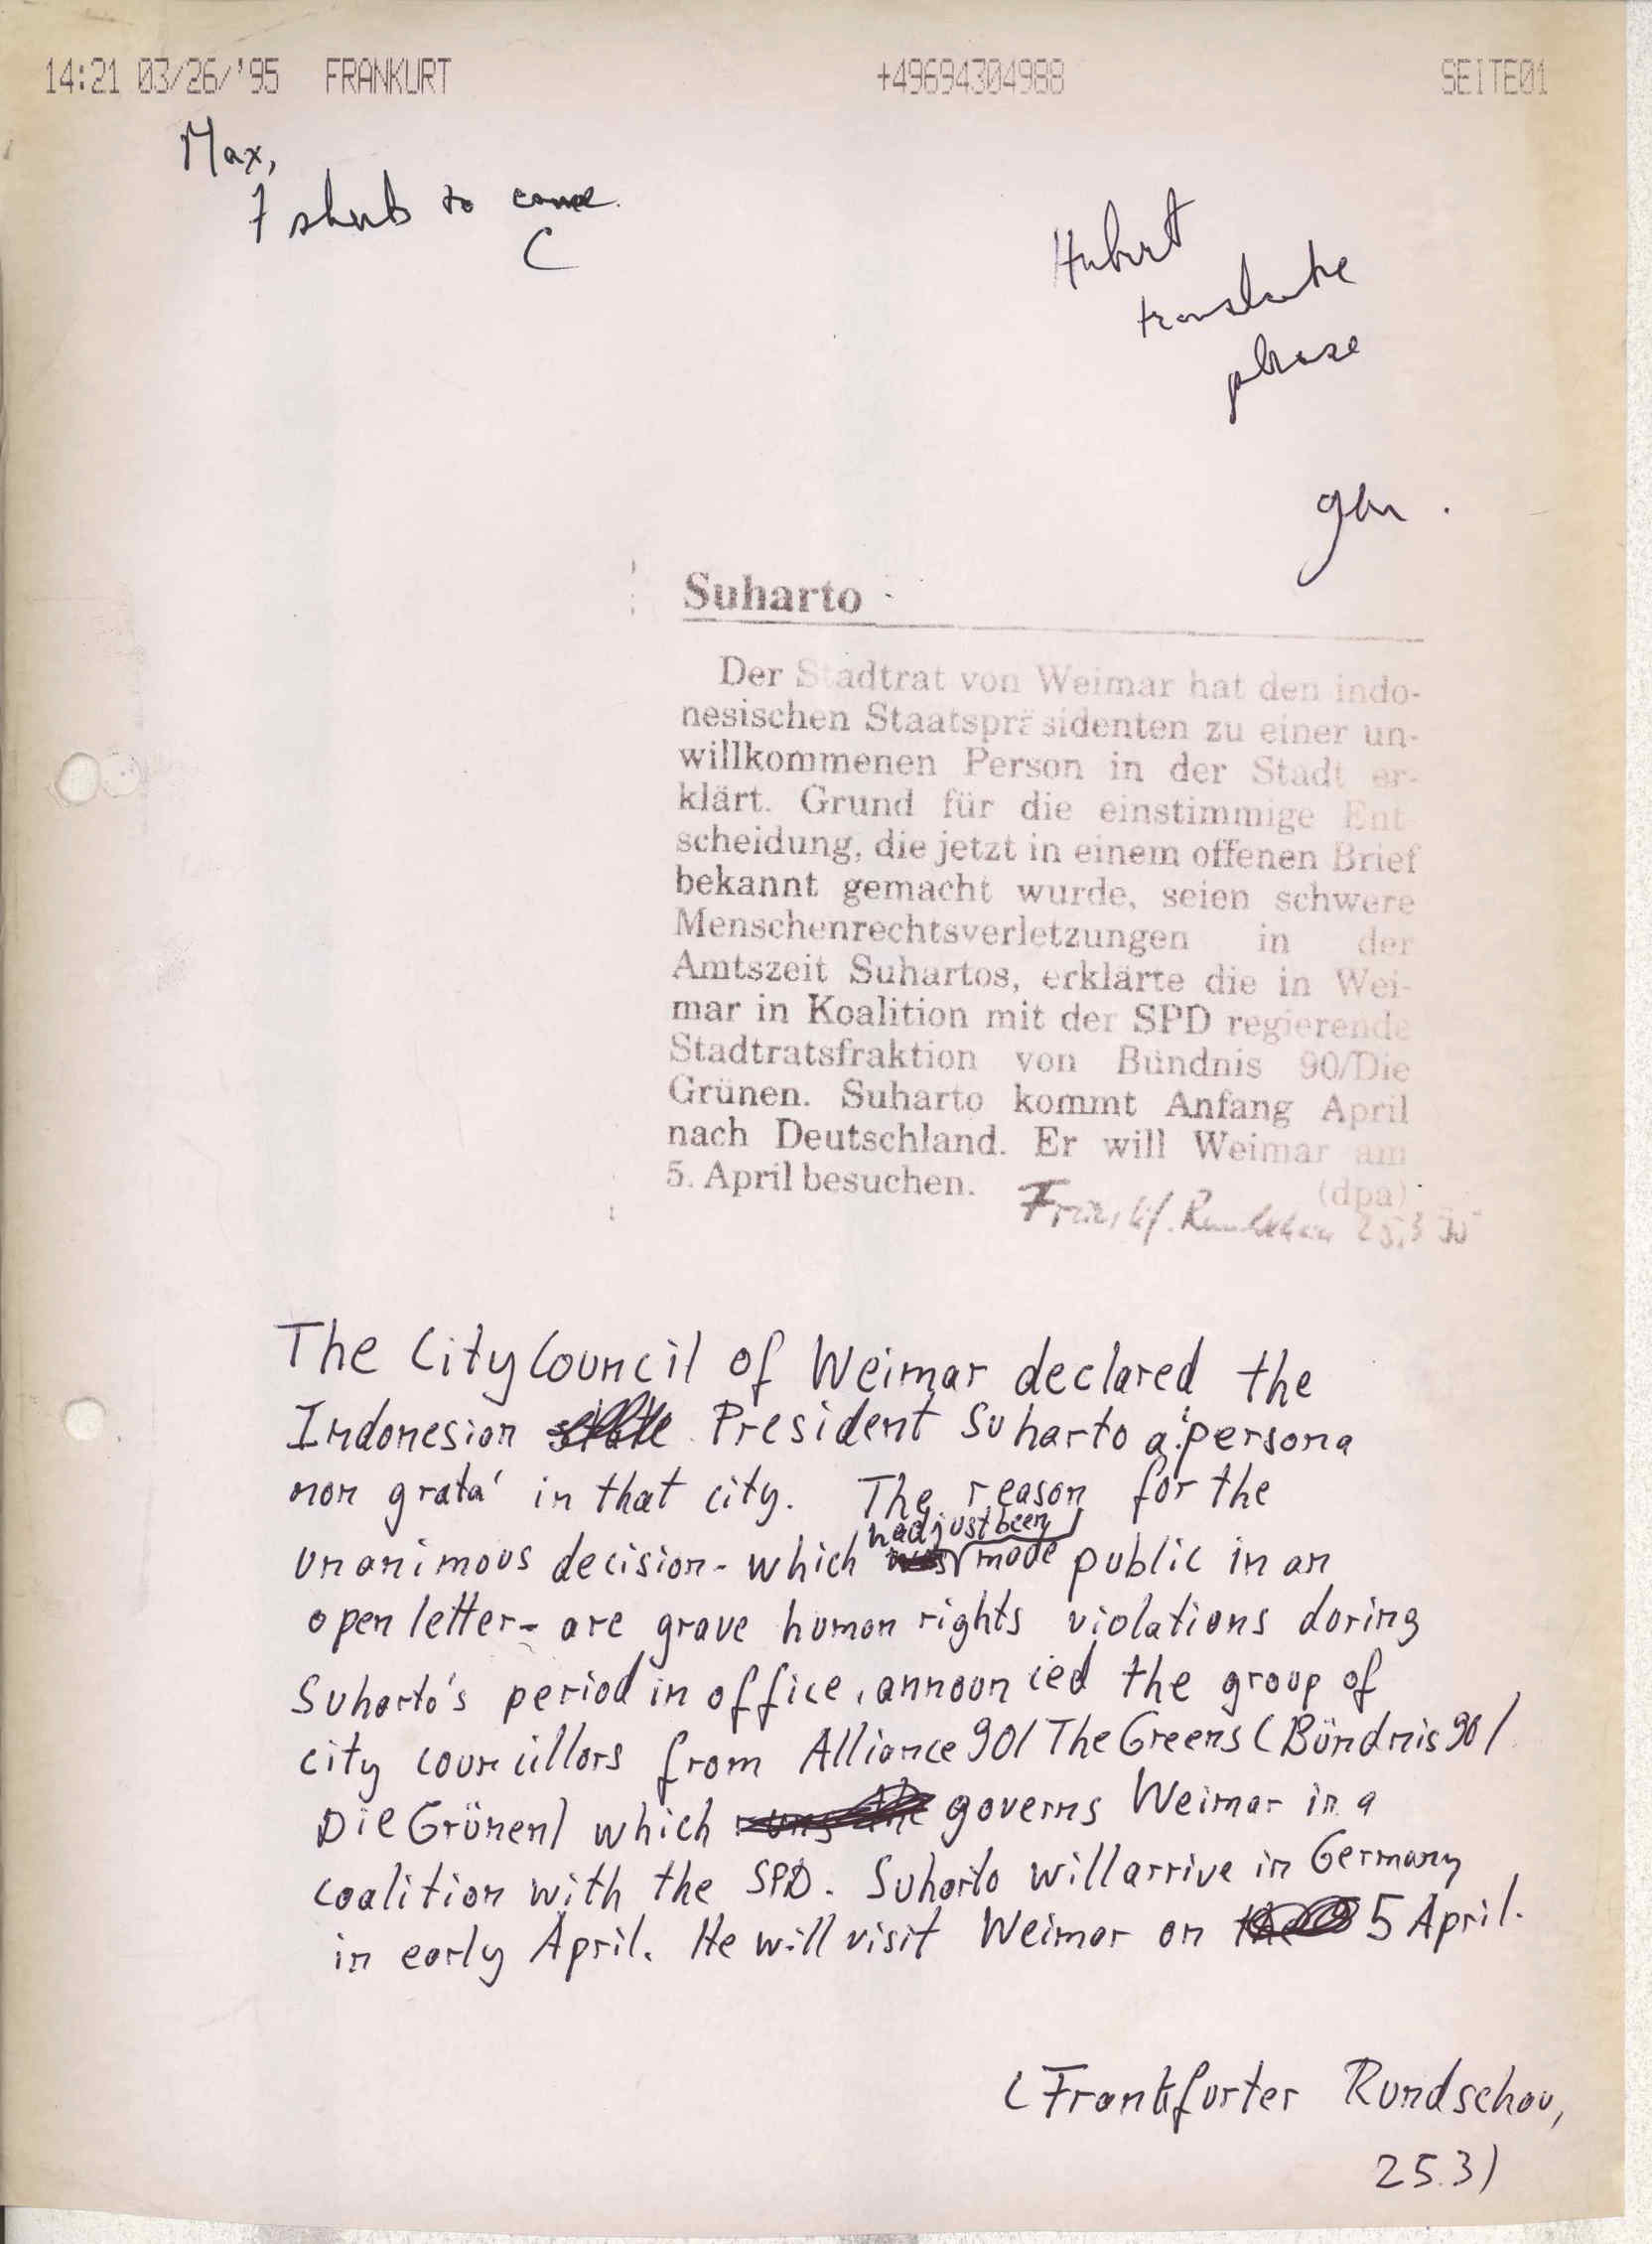 14:21 03/26/'95 FRANKURT +49694304988 SEITE01
Max,
7 sheets to come.
C
Hubert
translate
please
Suharto
Der Stadtrat von Weimar hat den indo-
nesischen Staatspräsidenten zu einer un-
willkommenen Person in der Stadt er-
klärt. Grund für die einstimmige Ent
scheidung, die jetzt in einem offenen Brief
bekannt gemacht wurde, seien schwere
Menschenrechtsverletzungen in der
Amtszeit Suhartos, erklärte die in Wei-
mar in Koalition mit der SPD regierende
Stadtratsfraktion von Bündnis 90/Die
Grünen. Suharto kommt Anfang April
nach Deutschland. Er will Weimar am
5. April besuchen. (dpa)
Frankf. Rundschau 25.3.95
The City Council of Weimar declared the
Indonesian President Suharto a 'persona
non grata' in that city. The reason for the
unanimous decision - which had just been made public in an
open letter - are grave human rights violations during
Suharto's period in office, announcied the group of
city councillors from Alliance 90/The Greens (Bündnis 90/
Die Grünen) which governs Weimar in a
coalition with the SPD. Suharto will arrive in Germany
in early April. He will visit Weimar on 5 April.
(Frankfurter Rundschau,
25.3)